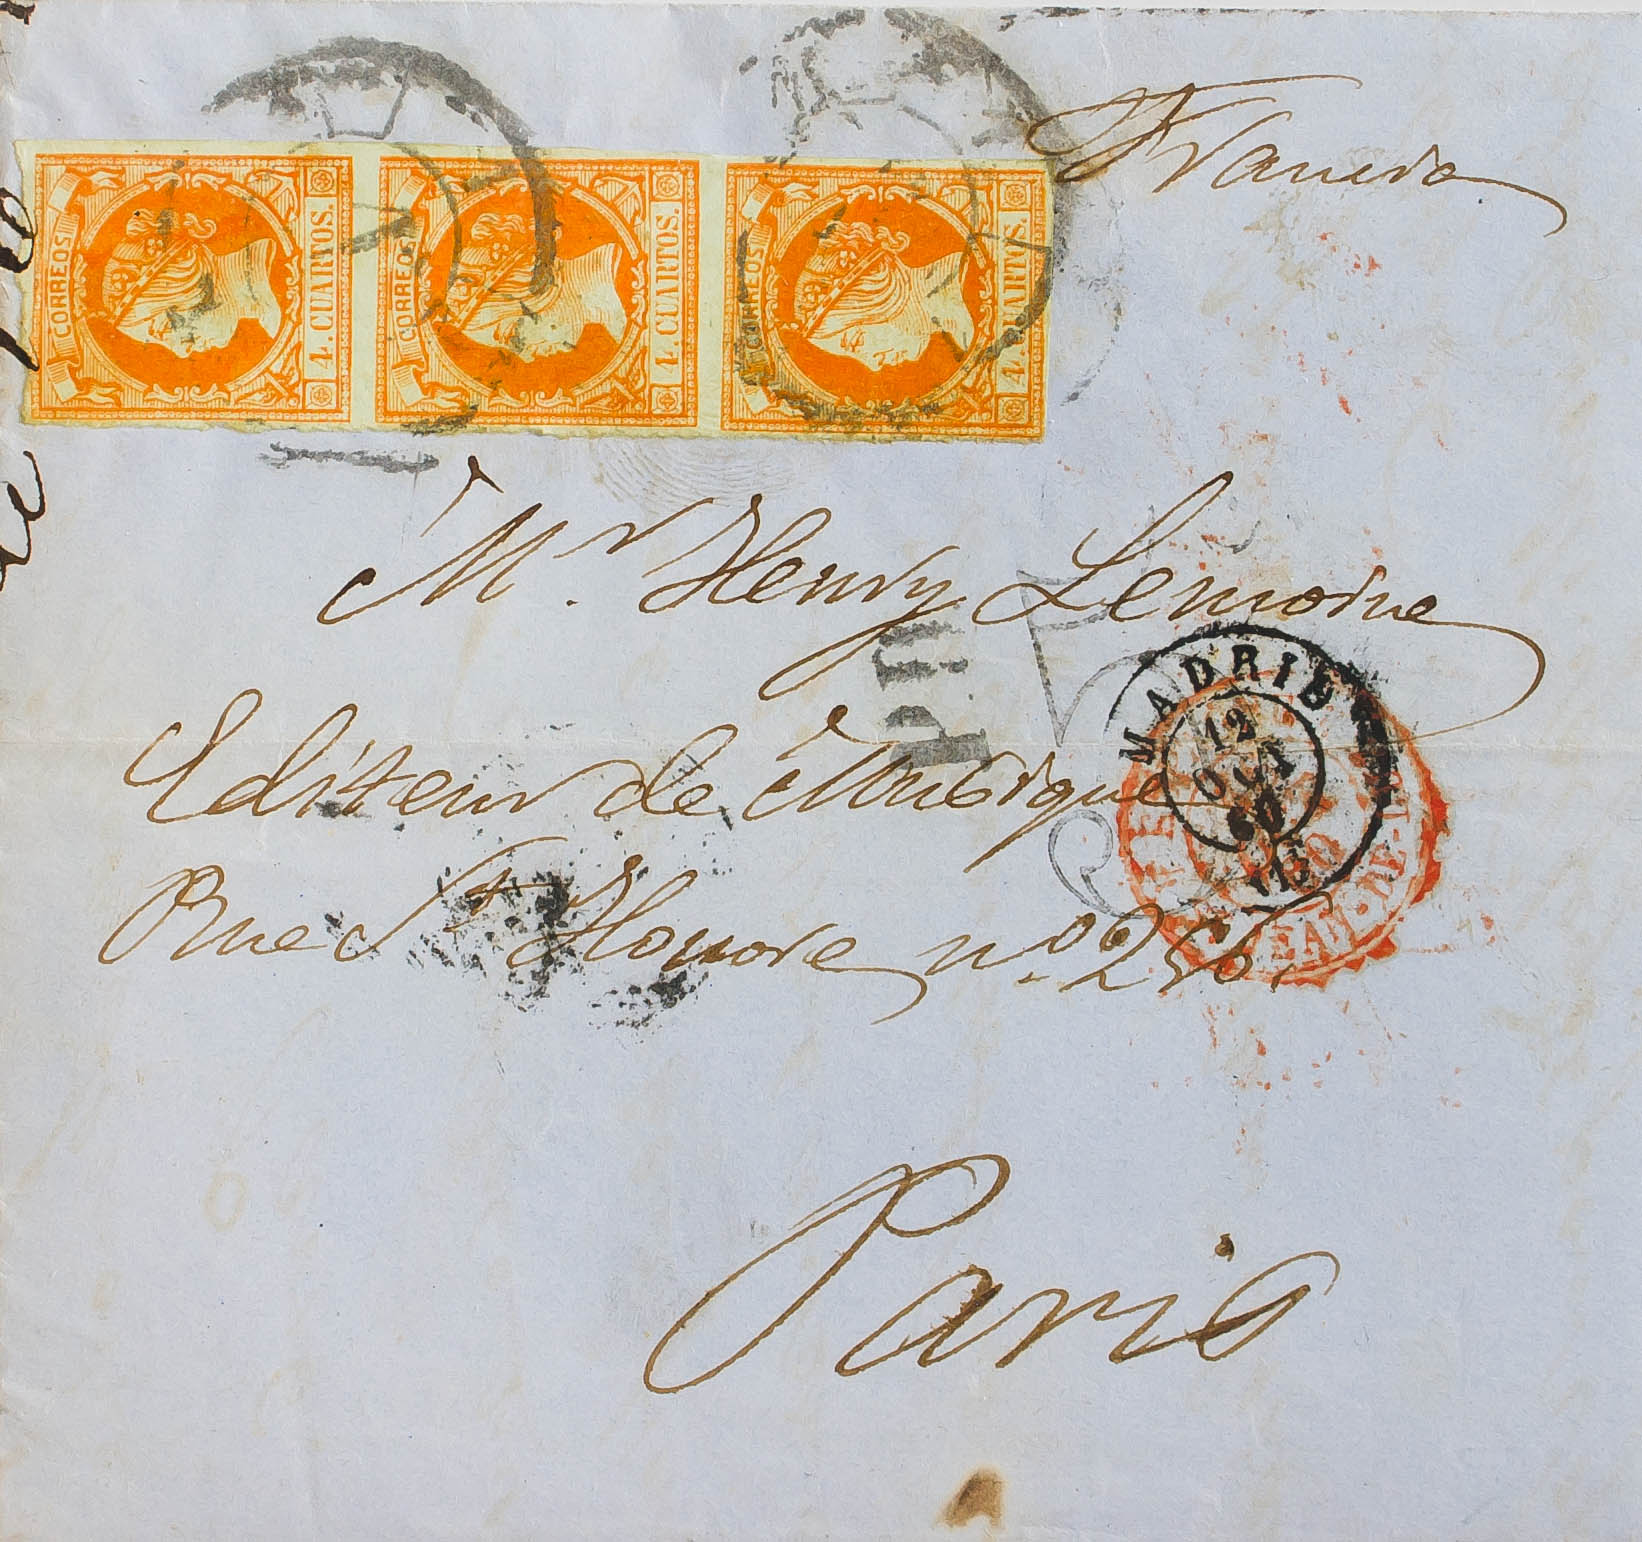 Francia
CORREOS
4. CUARTOS.
CORREOS
4. CUARTOS.
CORREOS
4. CUARTOS.
Mr. Henry Lemoine
Editeur de Musique
P.D.
MADRID
12
OCT
60
Rue St Honore nº 256.
Paris